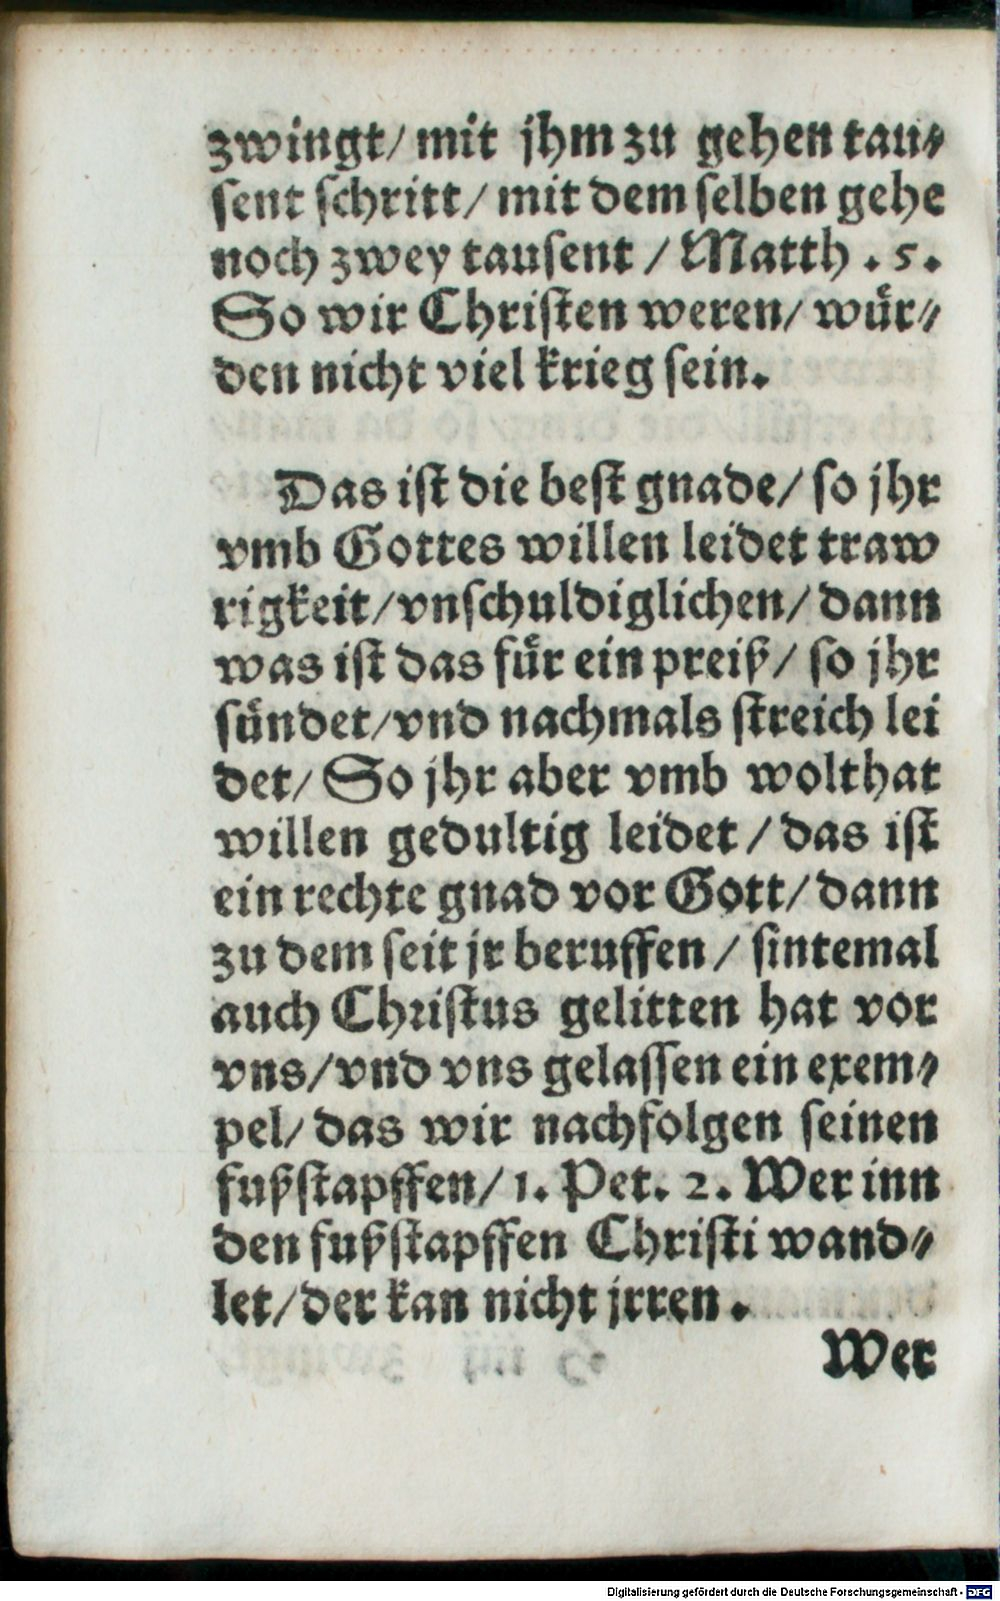 zwingt/ mit jhm zu gehen tau⸗
sent schritt/ mit dem selben gehe
noch zwey tausent / Matth . 5.
So wir Christen weren/ wuͤr⸗
den nicht viel krieg sein.
Das ist die best gnade/ so jhr
vmb Gottes willen leidet traw
rigkeit/ vnschuldiglichen/ dann
was ist das fuͤr ein preiß/ so jhr
suͤndet/ vnd nachmals streich lei
det/ So jhr aber vmb wolthat
willen gedultig leidet / das ist
ein rechte gnad vor Gott/ dann
zu dem seit jr beruffen / sintemal
auch Christus gelitten hat vor
vns/ vnd vns gelassen ein exem⸗
pel/ das wir nachfolgen seinen
fußstapffen/ 1. Pet. 2. Wer inn
den fußstapffen Christi wand⸗
let/ der kan nicht jrren.
Wer
Digitalisierung gefördert durch die Deutsche Forschungsgemeinschaft - DFG